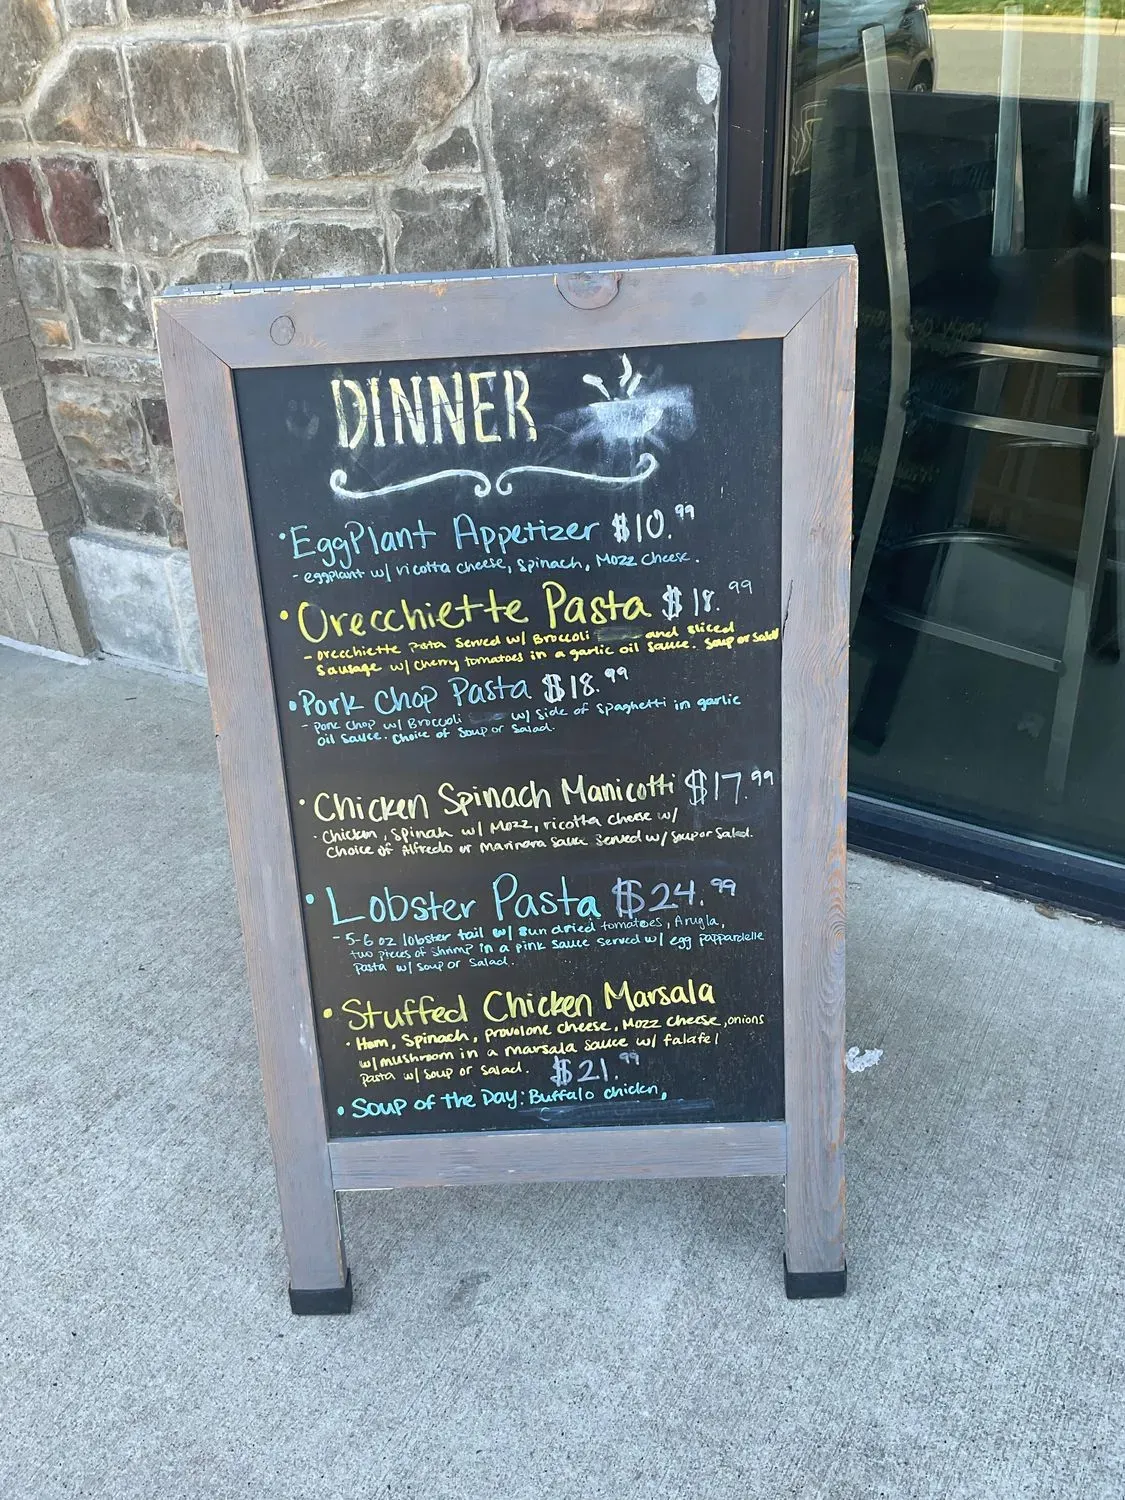 DINNER
• EggPlant Appetizer $10.99
- eggplant w/ ricotta cheese, spinach, Mozz cheese.
• Orecchiette Pasta $18.99
- orecchiette pasta served w/ Broccoli and sliced
Sausage w/ cherry tomatoes in a garlic oil sauce. Soup or Salad
• Pork Chop Pasta $18.99
- Pork Chop w/ Broccoli w/ side of spaghetti in garlic
oil sauce. Choice of soup or salad.
• Chicken Spinach Manicotti $17.99
• Chicken, spinah w/ Mozz, ricotta cheese w/
choice of Alfredo or Marinara sauce served w/ soup or salad.
• Lobster Pasta $24.99
- 5-6 oz lobster tail w/ sun dried tomatoes, Arugla,
two pieces of shrimp in a pink sauce served w/ egg pappardelle
pasta w/ soup or salad.
• Stuffed Chicken Marsala
• Ham, Spinach, provolone cheese, Mozz cheese, onions
w/ mushroom in a marsala sauce w/ falafel
pasta w/ soup or salad. $21.99
• Soup of the Day: Buffalo chicken,